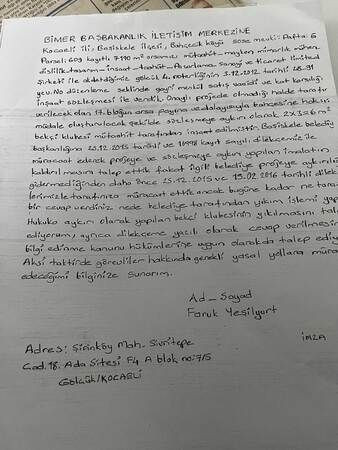 BİMER BAŞBAKANLIK İLETİŞİM MERKEZİNE
Kocaeli ili, Başiskele ilçesi, Bahçecik köyü mevki: Pafta: 6
Parsel: 609 kayıtlı, 7190 m² arsamızı müteahhit mimarlık mühen
dislik tasarım inşaat taahüt Pazarlama sanayi ve ticaret limited
Şirketi ile akdettiğimiz gölcük 4. noterliğinin 3.12.2012 tarihli
yev. No düzenleme şeklinde gayri menkul satış vaadi ve kat karşılığı
inşaat sözleşmesi ile verdik. Onaylı projede olmadığı halde tarafı
verilecek olan bloğun arsa payına ve dolayısıyla bahçesine haksız
müdale oluşturulacak şekilde hukuka aykırı olarak
bekçi kulübesi müteahit tarafından inşaat edilmiştir. Başiskele belediye
başkanlığına 23.12.2015 tarihli ve kayıt sayılı dilekçemle
müracaat ederek projeye ve sözleşmeye aykırı yapılan imalatın
kaldırılmasını talep ettik fakat ilgili belediye projeye aykırılığı
gidermediğinden daha önce 25.12.2015 ve 15.02.2016 tarihli dilek
lerimizle tarafınıza müracaat ettik ancak bugüne kadar ne tara
bir cevap verdiniz nede belediye tarafından yıkım işlemi yap
Hukuka aykırı olarak yapılan bekci klubesinin yıkılmasını tale
ediyorum, ayrıca dilekçeme yazılı olarak cevap verilmesini
bilgi edinme kanunu hükümlerine uygun olarakda talep ediyo
Aksi taktirde görevliler hakkında gerekli yasal yollara müra
edeceğimi bilginize sunarım.
Ad - Soyad
Faruk Yeşilyurt
İMZA
Adres: Şirinköy Mah. Sivritepe
Cad. 18. Ada Sitesi F4 A blok no: 7/5
Gölcük/KOCAELİ